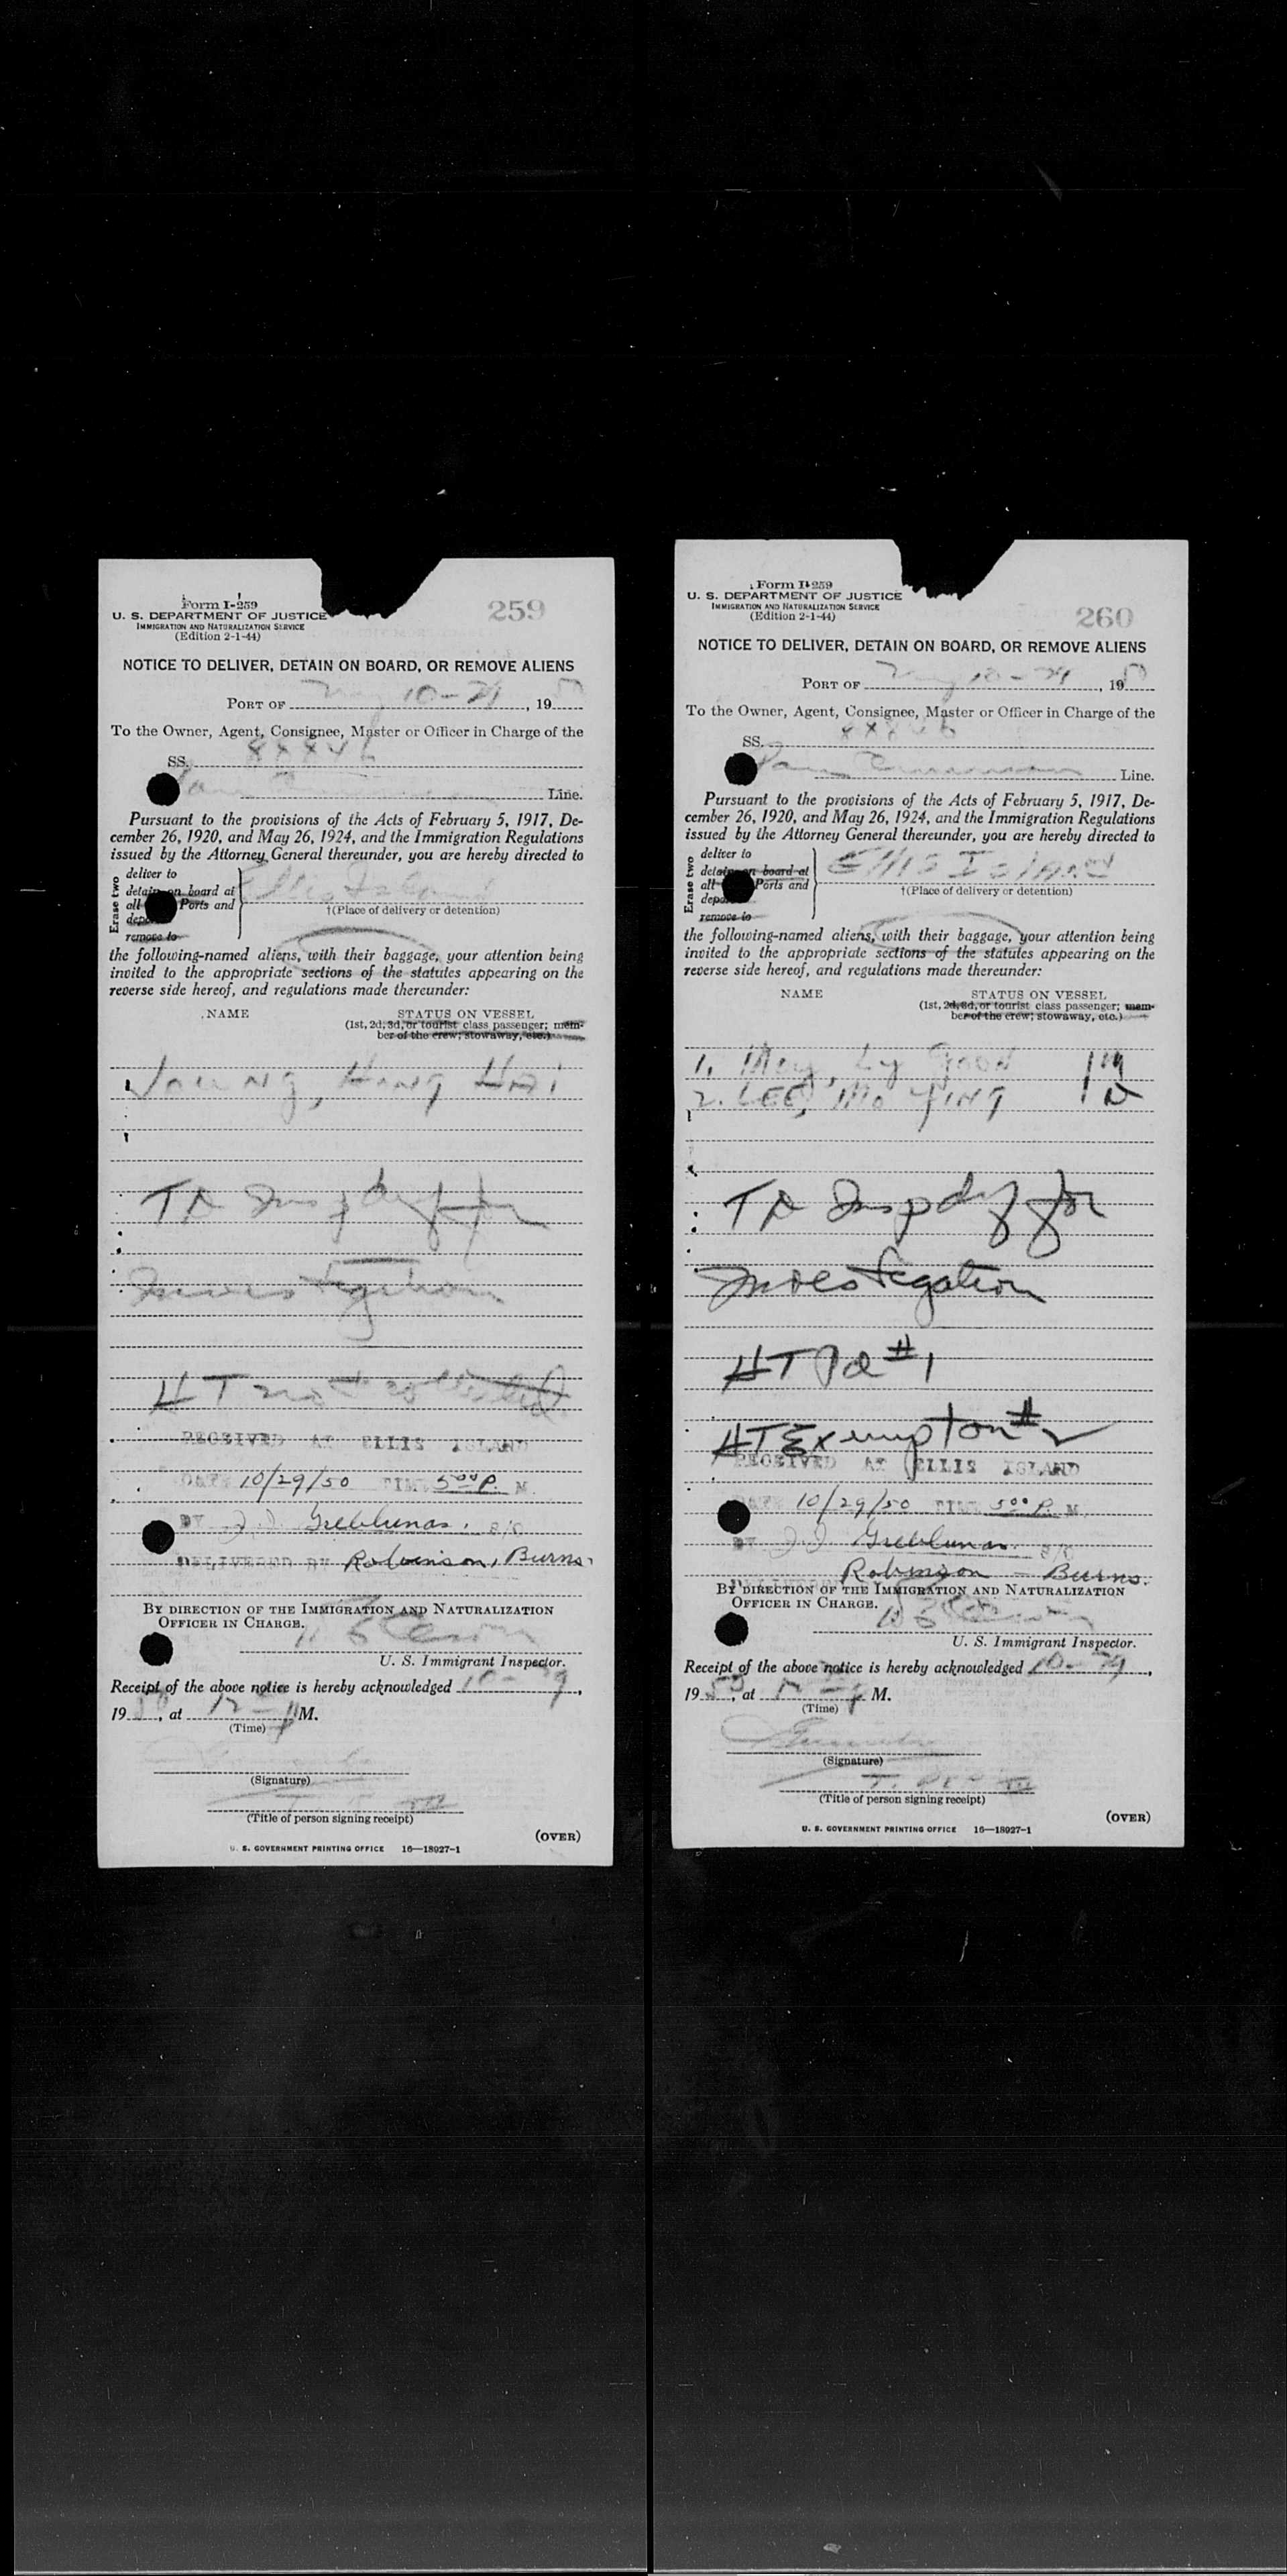 Form I-259
U. S. DEPARTMENT OF JUSTICE
IMMIGRATION AND NATURALIZATION SERVICE
(Edition 2-1-44)
259
NOTICE TO DELIVER, DETAIN ON BOARD, OR REMOVE ALIENS
PORT OF 10-29, 1950
To the Owner, Agent, Consignee, Master or Officer in Charge of the
SS.
Line.
Pursuant to the provisions of the Acts of February 5, 1917, De-
cember 26, 1920, and May 26, 1924, and the Immigration Regulations
issued by the Attorney General thereunder, you are hereby directed to
Erase two
deliver to
detain on board at
all Ports and
remove to
Ellis Island
†(Place of delivery or detention)
the following-named aliens, with their baggage, your attention being
invited to the appropriate sections of the statutes appearing on the
reverse side hereof, and regulations made thereunder:
NAME
STATUS ON VESSEL
(1st, 2d, 3d, or tourist class passenger; mem-
ber of the crew; stowaway, etc.)
Young, Hing Hai
TD Insp for
Investigation
HT not collected
RECEIVED AT ELLIS ISLAND
DATE 10/29/50 TIME 5:00 P. M.
BY J.J. Greblunas. S/O
DELIVERED BY Robinson, Burns.
BY DIRECTION OF THE IMMIGRATION AND NATURALIZATION
OFFICER IN CHARGE.
U. S. Immigrant Inspector.
Receipt of the above notice is hereby acknowledged 10-29,
1950, at 12 M.
(Time)
(Signature)
(Title of person signing receipt)
(OVER)
U. S. GOVERNMENT PRINTING OFFICE 16—18927-1
Form I-259
U. S. DEPARTMENT OF JUSTICE
IMMIGRATION AND NATURALIZATION SERVICE
(Edition 2-1-44)
260
NOTICE TO DELIVER, DETAIN ON BOARD, OR REMOVE ALIENS
PORT OF 10-29, 1950
To the Owner, Agent, Consignee, Master or Officer in Charge of the
SS.
Pan American Line.
Pursuant to the provisions of the Acts of February 5, 1917, De-
cember 26, 1920, and May 26, 1924, and the Immigration Regulations
issued by the Attorney General thereunder, you are hereby directed to
Erase two
deliver to
detain on board at
all Ports and
remove to
Ellis Island
†(Place of delivery or detention)
the following-named aliens, with their baggage, your attention being
invited to the appropriate sections of the statutes appearing on the
reverse side hereof, and regulations made thereunder:
NAME
STATUS ON VESSEL
(1st, 2d, 3d, or tourist class passenger; mem-
ber of the crew; stowaway, etc.)
1. Moy, Ly Goon 1 M
2. LEE, Mo Ying 1
TD Insp for
Investigation
HT Pd #1
HT Exemption #2
RECEIVED AT ELLIS ISLAND
DATE 10/29/50 TIME 5:00 P. M.
BY J.J. Greblunas. S/O
Robinson - Burns.
BY DIRECTION OF THE IMMIGRATION AND NATURALIZATION
OFFICER IN CHARGE.
U. S. Immigrant Inspector.
Receipt of the above notice is hereby acknowledged 10-29,
1950, at 12 M.
(Time)
(Signature)
(Title of person signing receipt)
(OVER)
U. S. GOVERNMENT PRINTING OFFICE 16—18927-1